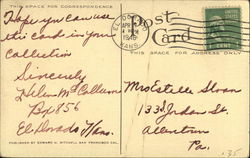 THIS SPACE FOR CORRESPONDENCE
Post
Card
THIS SPACE FOR ADDRESS ONLY
Hope you can use
this card in your
collection
Sincerely
Helen McCallum
Bx 856
El Dorado, Kans.
Mrs Estelle Sloan
133 Jordan St.
Allentown
Pa.
PUBLISHED BY EDWARD H. MITCHELL SAN FRANCISCO CAL.
.35